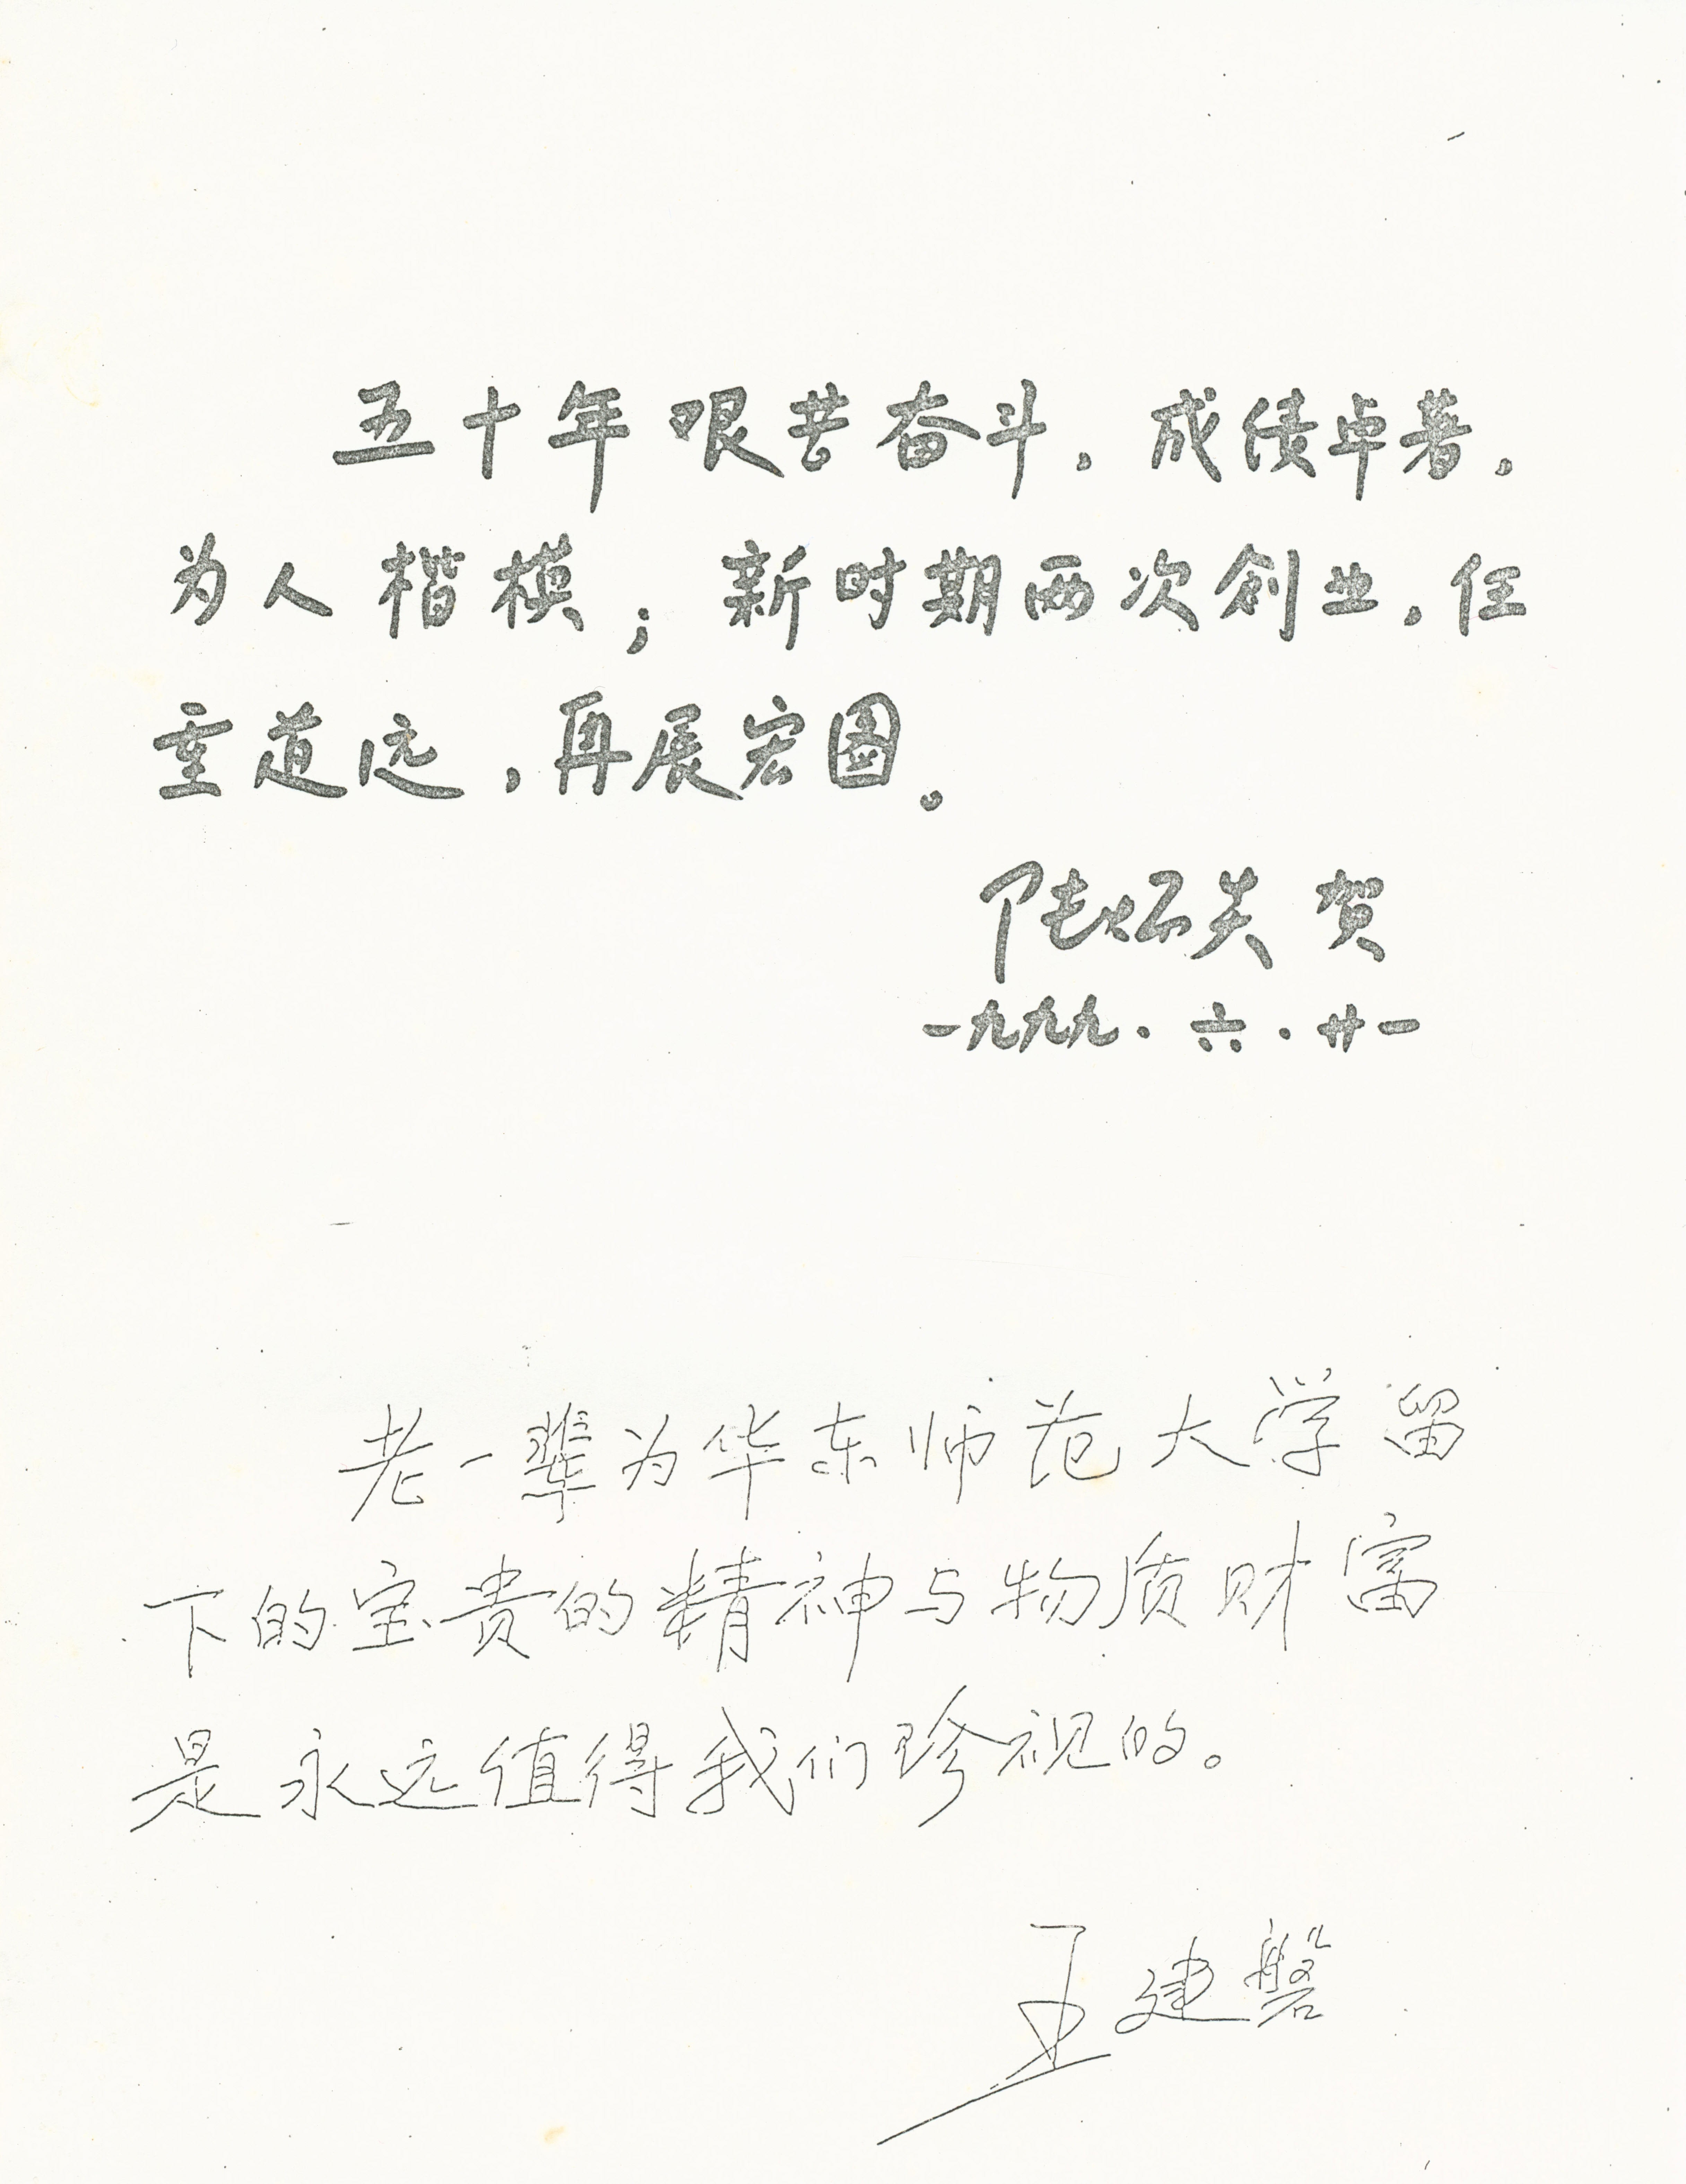 五十年艰苦奋斗，成绩卓著，
为人楷模；新时期两次创业，任
重道远，再展宏图。
陆炳炎 贺
一九九九·六·廿一
老一辈为华东师范大学留
下的宝贵的精神与物质财富
是永远值得我们珍视的。
王建磐